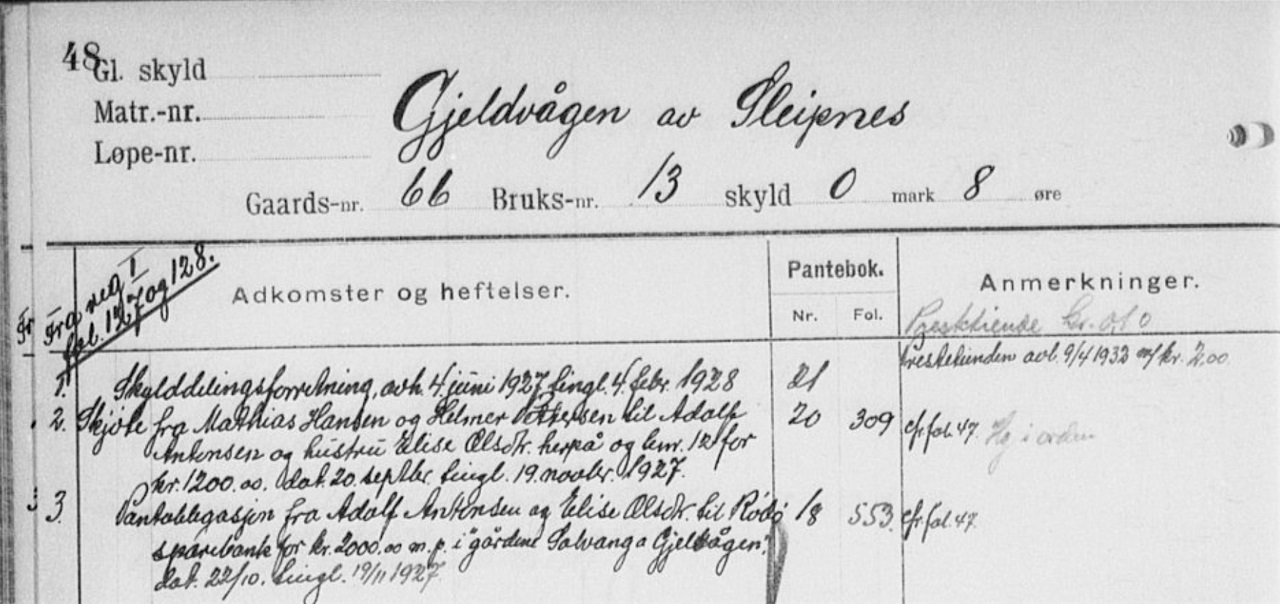 48
Gl. skyld
Matr.-nr.
Løpe-nr.
Gjeldvågen av Sleipnes
Gaards-nr. 66 Bruks-nr. 13 skyld 0 mark 8 øre
Fra reg I
fol. 127 og 128.
Adkomster og heftelser.
Pantebok.
Nr. Fol.
Anmerkninger.
Prestetiende kr. 0.10
Prestetienden avl. 9/4 1932 m/ kr. 2.00
1. Skylddelingsforretning, avh. 4 juni 1927, tingl. 4. febr. 1928 21
2. Skjøte fra Mathias Hansen og Helmer Pettersen til Adolf 20 309 cfr fol. 47. Hg i orden
Antonsen og hustru Elise Olsdtr. herpå og bnr. 12 for
kr. 1200.00. dat. 20. septbr. tingl. 19. novbr. 1927.
3. Pantobligasjon fra Adolf Antonsen og Elise Olsdtr. til Rødø 18 553. cfr fol. 47.
sparebank for kr. 2000.00 m. p. i "gårdene Solvang o Gjeldvågen".
dat. 22/10. tingl. 19/11 1927.